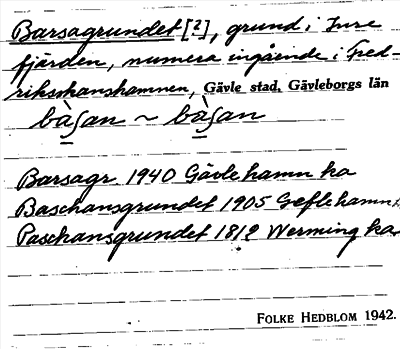 Barsagrundet [?], grund i Inre
fjärden, numera ingående i Fred-
rikskanshamnen, Gävle stad, Gävleborgs län
bàʃan ~ bàʃan
Barsagr. 1940 Gävle hamn ka
Baschansgrundet 1905 Gefle hamn k
Paschansgrundet 1812 Werming ka
FOLKE HEDBLOM 1942.